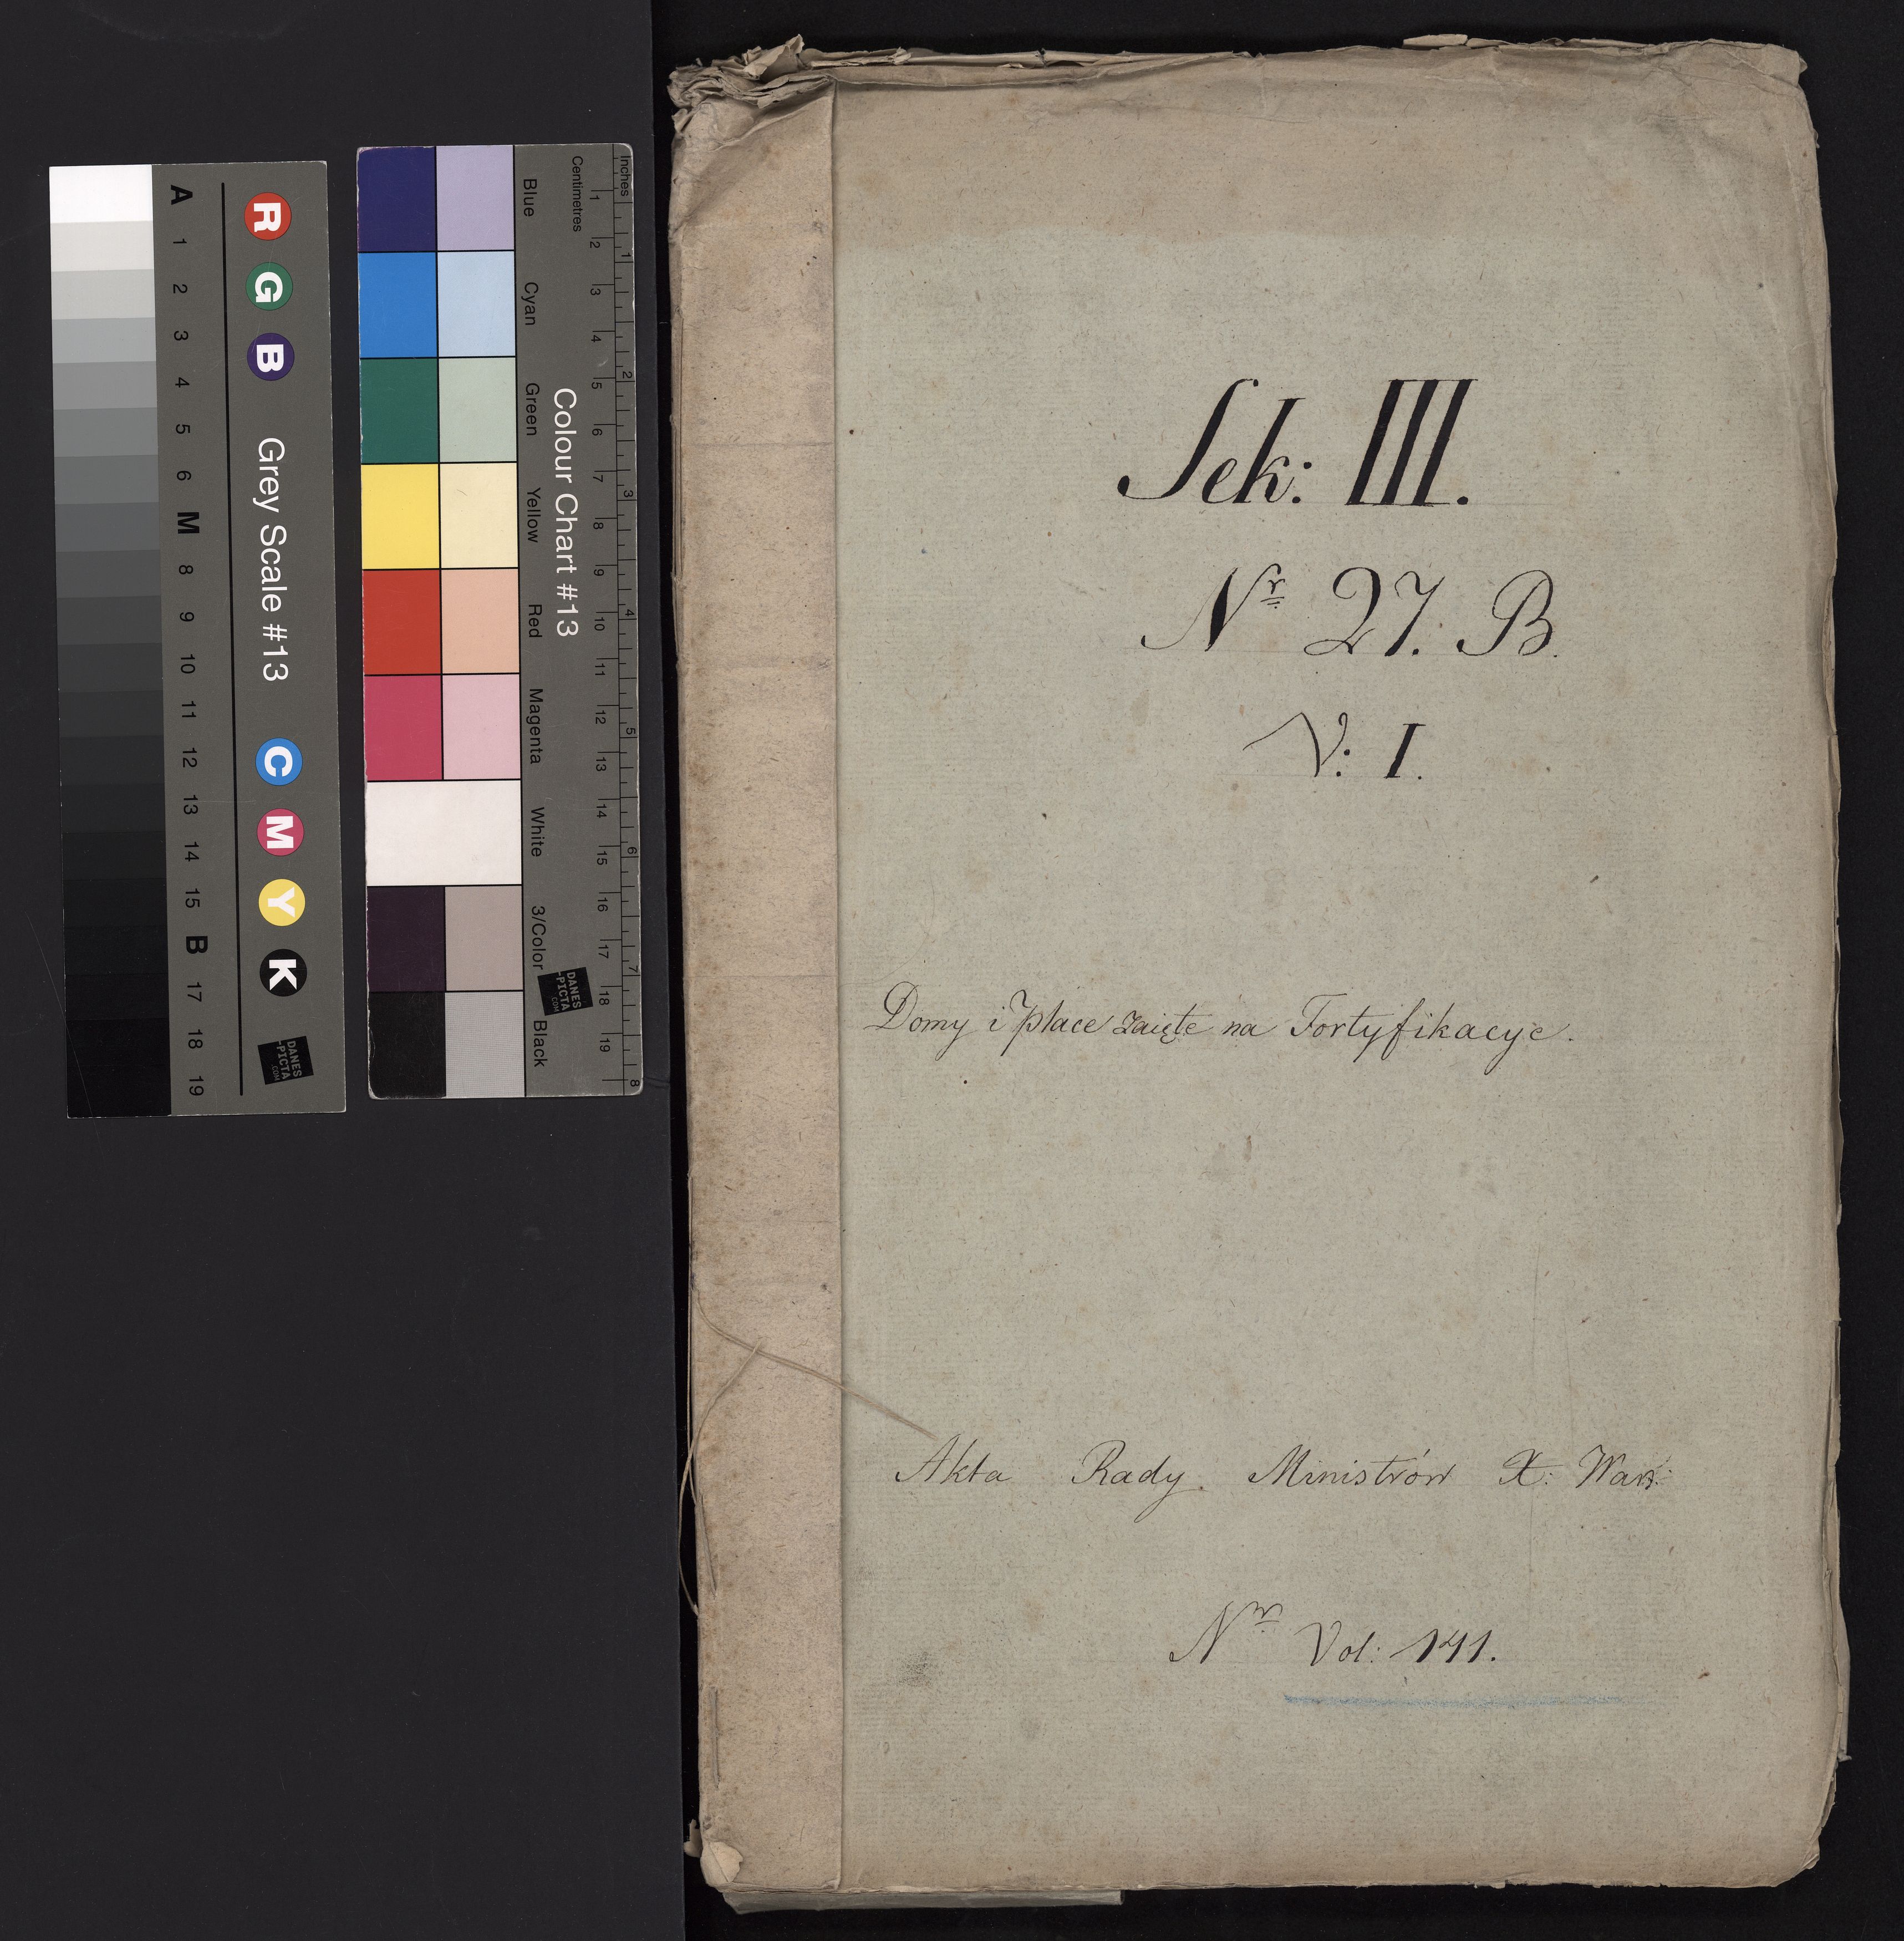 A 1 2 3 4 5 6 M 8 9 10 11 12 13 14 15 B 17 18 19
R G B Grey Scale #13 C M Y K
DANES
-PICTA
.COM
Blue Cyan Green Yellow Red Magenta White 3/Color Black
Colour Chart #13
DANES
-PICTA
.COM
Centimetres 1 2 3 4 5 6 7 8 9 10 11 12 13 14 15 16 17 18 19
Inches 1 2 3 4 5 6 7 8
Sek: III.
Nr 27. B.
V: I.
Domy i place zaięte na Fortyfikacye.
Akta Rady Ministrów X: Wars:
Nr Vol: 141.